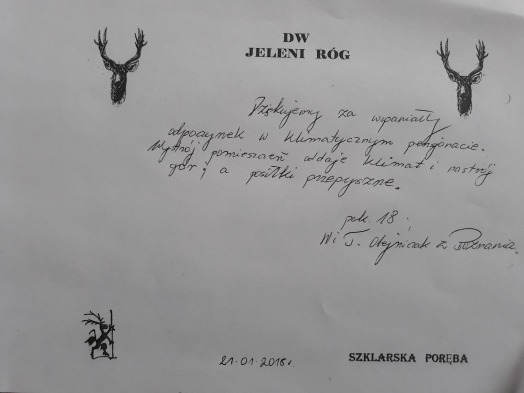 DW
JELENI RÓG
Dziękujemy za wspaniały
odpoczynek w klimatycznym pensjonacie.
Wystrój pomieszczeń oddaje klimat i nastrój
gór, a posiłki przepyszne.
pok. 18
W i J. Olejniczak z Poznania.
21.01.2018r.
SZKLARSKA PORĘBA